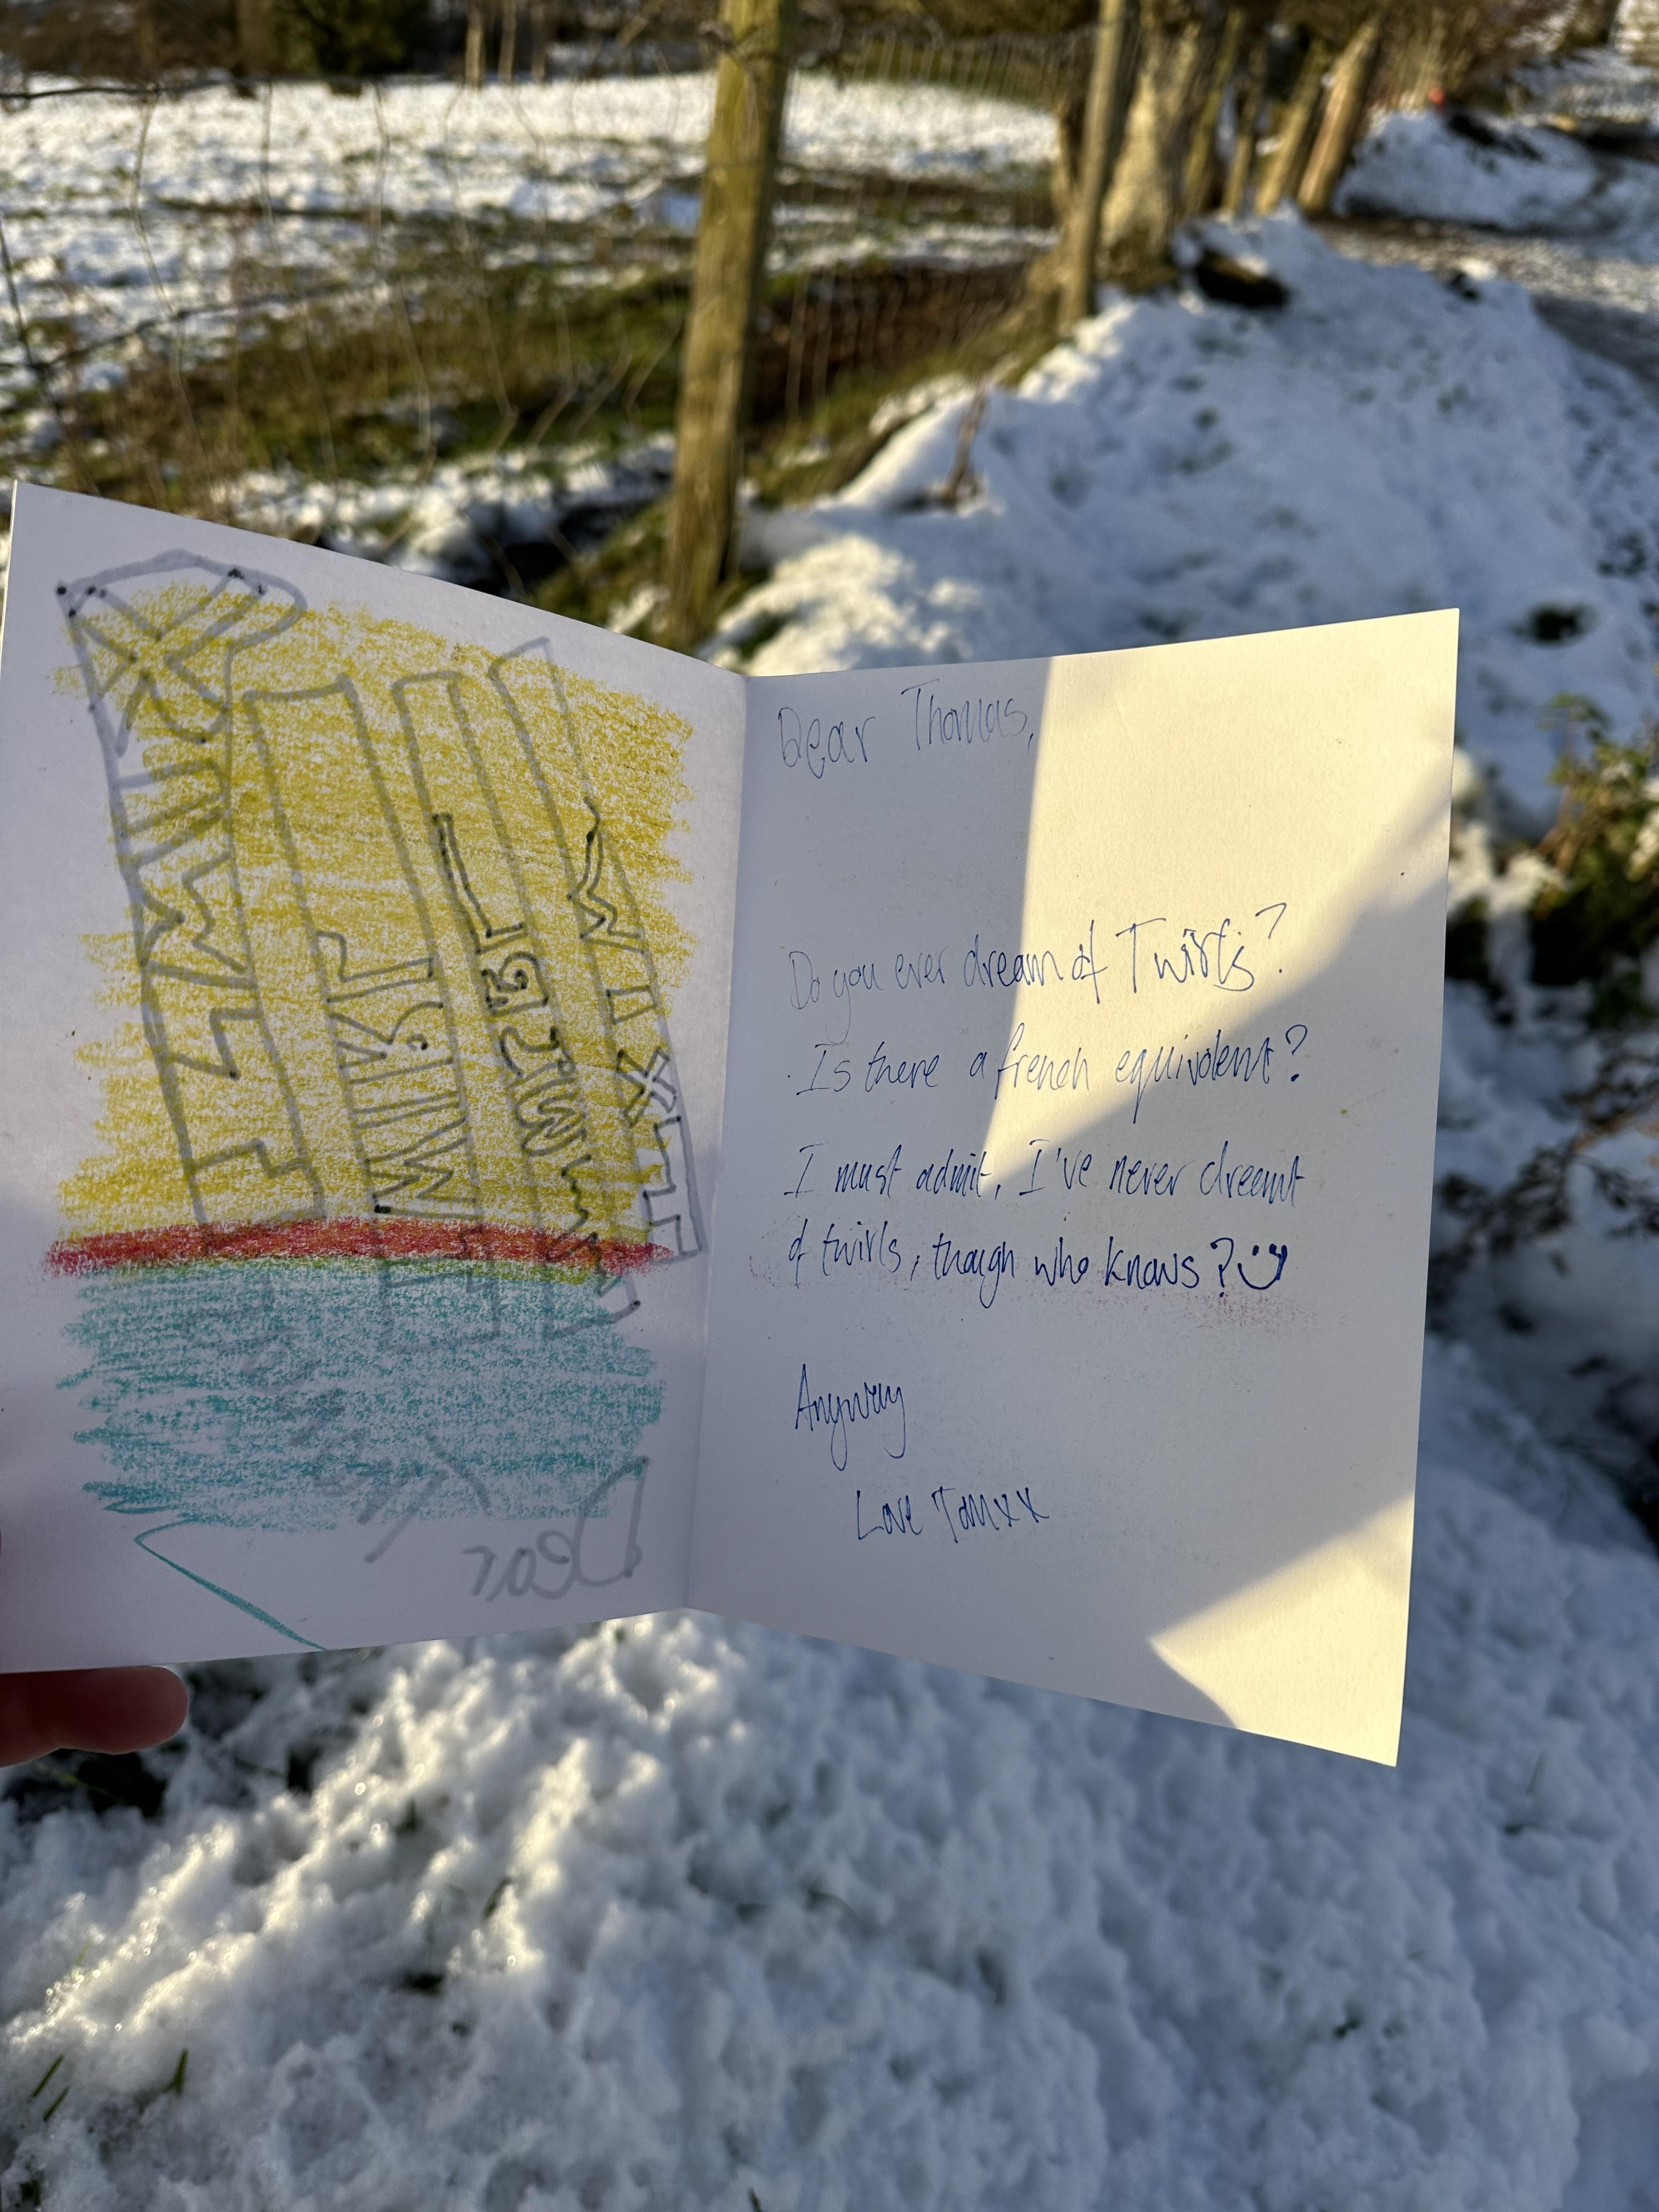 Dear Thomas,
Do you ever dream of Twirls?
Is there a french equivalent?
I must admit, I've never dreamt
of twirls, though who knows? :)
Anyway
Love Tom xx
Dear